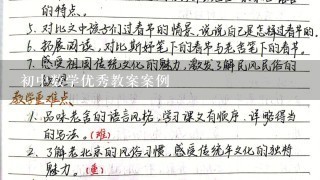 的特点。
5. 对比文中孩子们过春节的情景,说说自己是怎样过春节的。
6. 拓展阅读,对比斯好笔下的春节与老舍笔下的春节。
7. 感受祖国传统文化的魅力,激发了解民风民俗的
初中数学优秀教案案例
教学重难点
1. 品味老舍的语言风格,学习课文有顺序、详略得当
的写法。(难)
2. 了解老北京的风俗习惯,感受传统年文化的独特
魅力。(重)